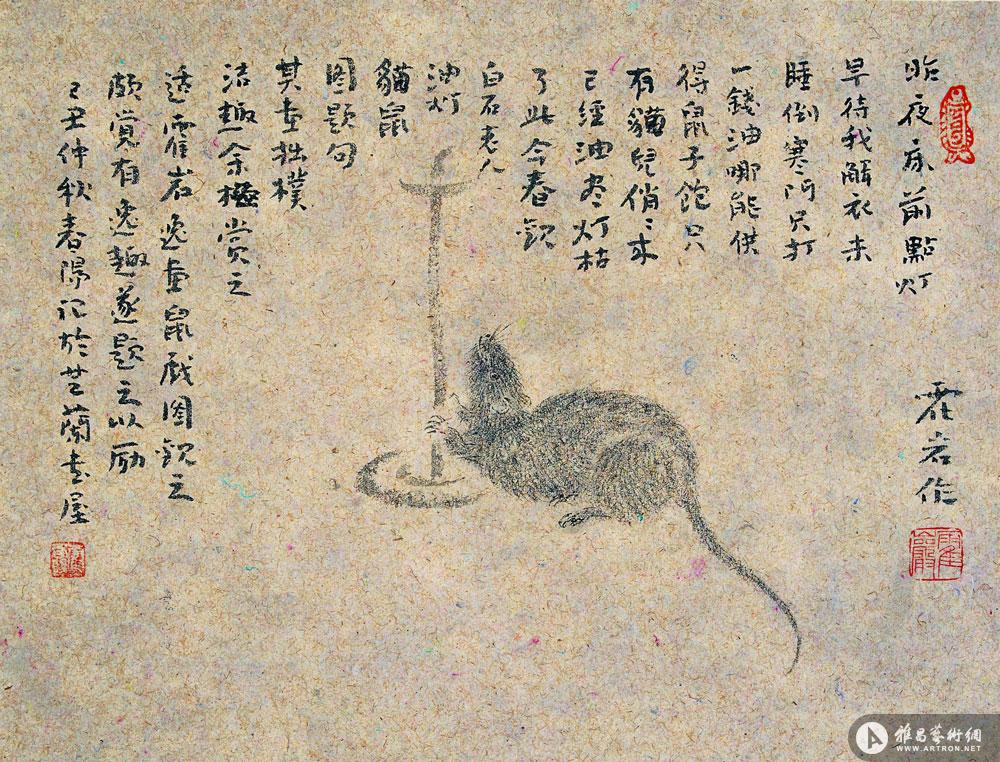 昨夜床前點灯
早待我解衣未
睡倒寒阿只打
一錢油哪能供
得鼠子饱只
有貓兒俏〻来
已經油尽灯枯
了此今春观
白石老人
油灯
貓鼠
图题句
其画拙樸
洁趣余極赏之
适霍岩逸画鼠戏图观之
颇觉有逸趣遂题之以励
己丑仲秋春陽记於芝蘭画屋
霍岩作
雅昌藝術網
WWW.ARTRON.NET